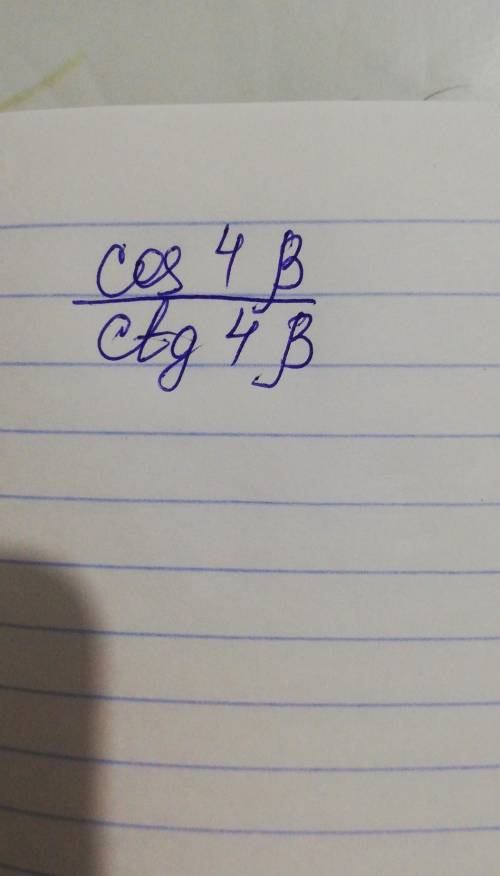 cos 4 β
ctg 4 β